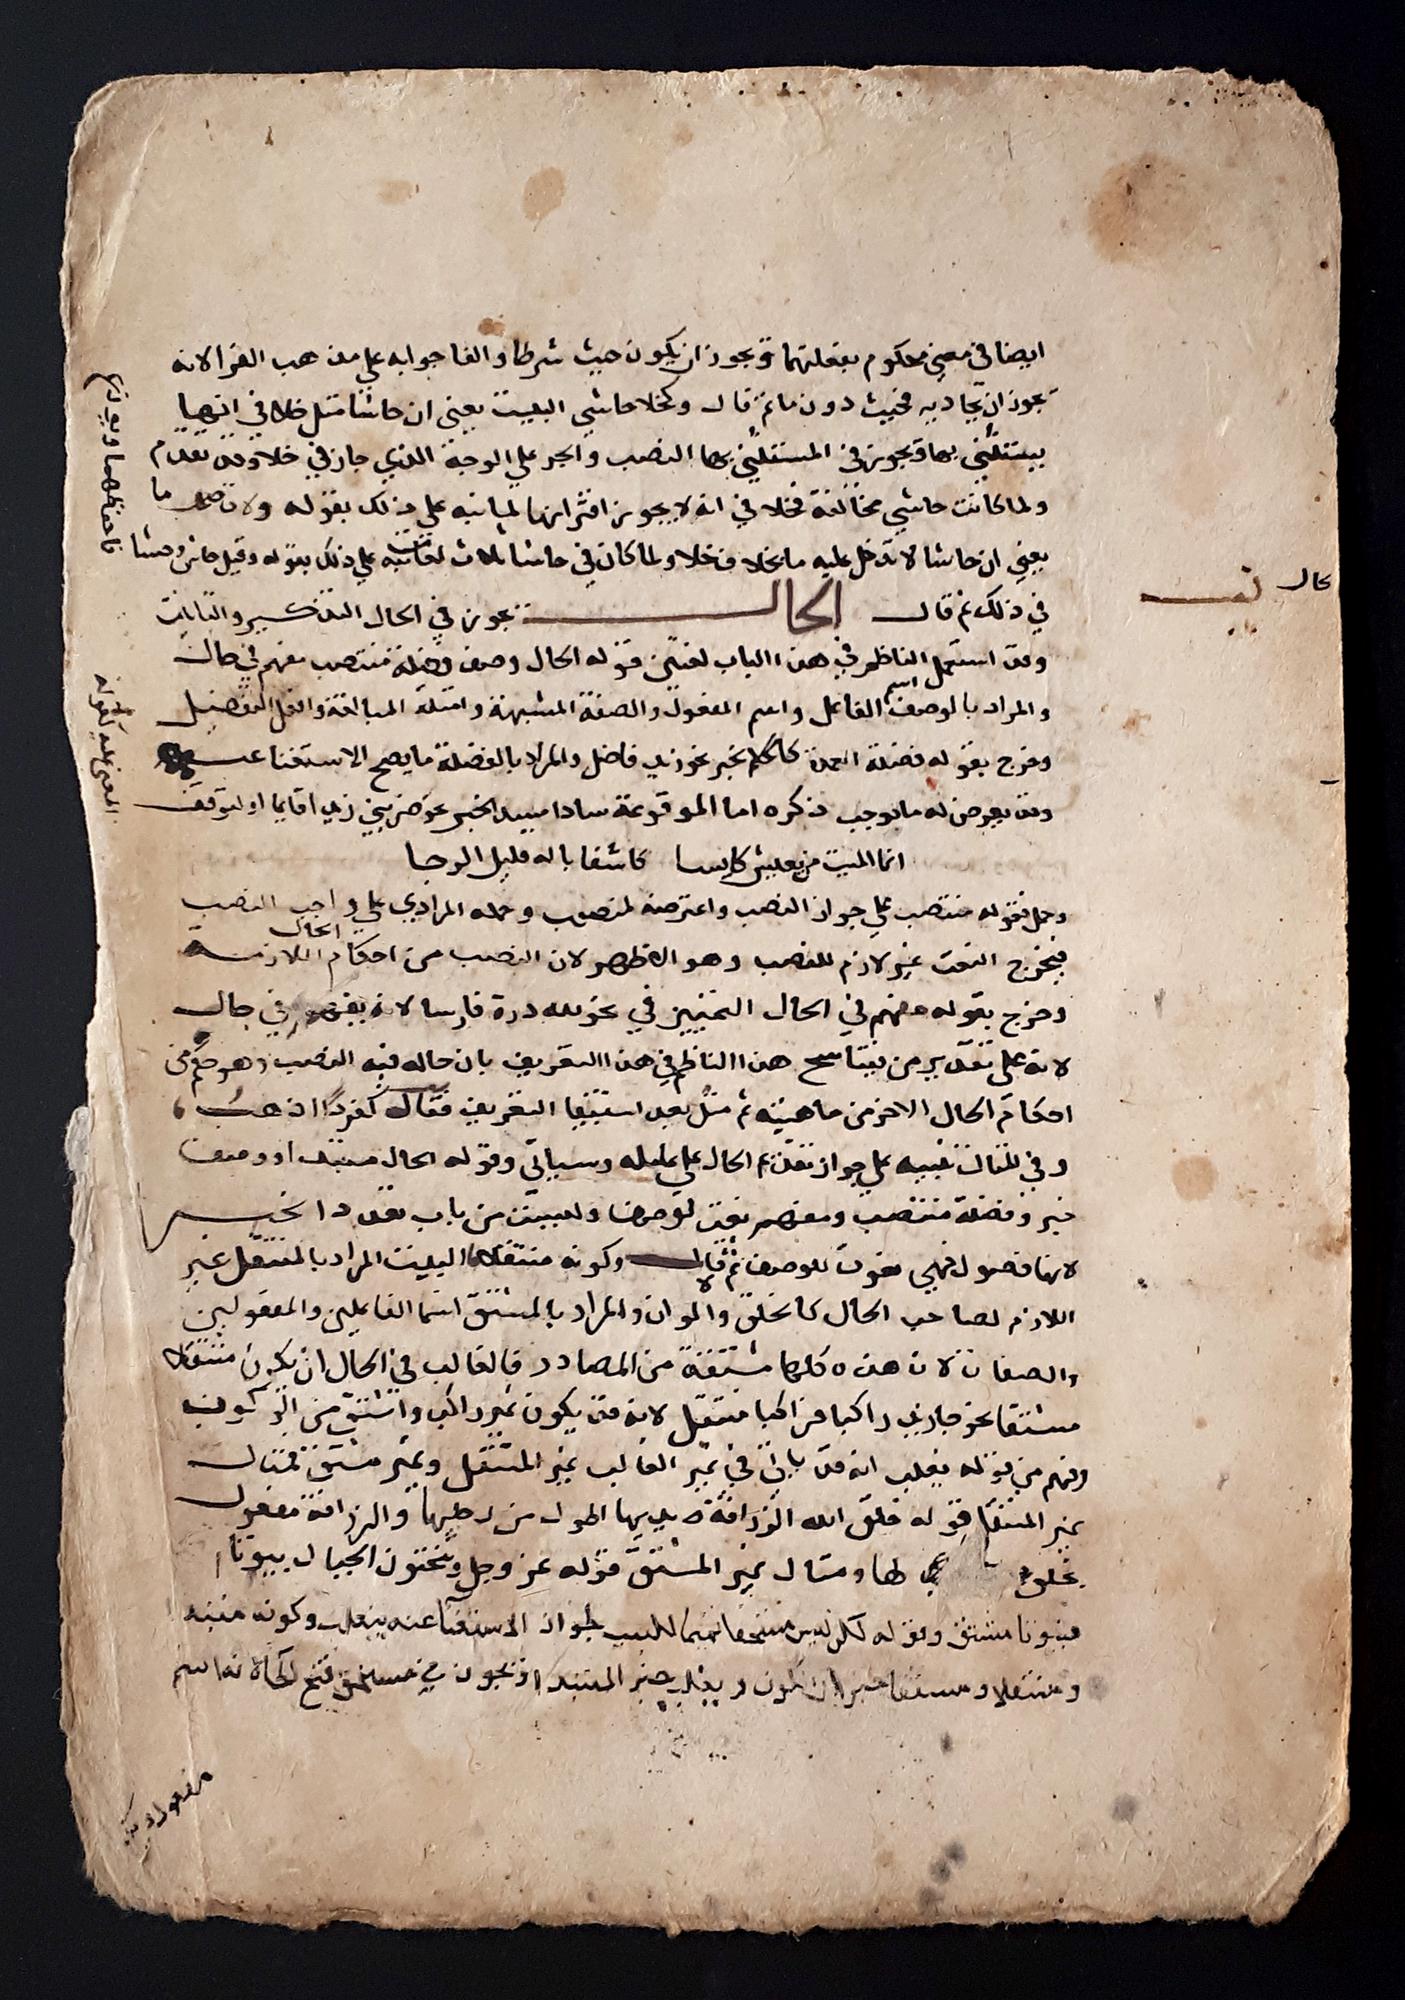 ايضا في معنى محكوم بفعليتهما ويجوز ان يكون حيث شرطا والفا جوابه على مذهب الفرا لانه
يجوز ان يجازي بحيث دون ما ثم قال وكخلا حاشى البيت يعنى ان حاشا مثل خلا في انها
يستثنى بها ويجوز في المستثنى بها النصب والجر على الوجه الذي جاز في خلا وقد تقدم
ولما كانت حاشى مخالفة لخلا في انه لا يجوز اقترانها بما نبه على ذلك بقوله ولا تصحب ما
يعني ان حاشا لا تدخل عليه ما بخلاف خلا ولما كان في حاشا ثلاث لغات نبه على ذلك بقوله وقيل حاش وحشا
في ذلك ثم قال الحال يجوز في الحال التذكير والتانيث
وقد استعمل الناظم في هذا الباب لغتين قوله الحال وصف فضلة منتصب مفهم في حال
والمراد بالوصف اسم الفاعل واسم المفعول والصفة المشبهة وامثلة المبالغة وافعل التفضيل
وخرج بقوله فضلة العمدة كالخبر نحو زيد فاضل والمراد بالفضلة ما يصح الاستغنا عنه
وقد يعرض له ما يوجب ذكره اما لوقوعه سادا مسد الخبر نحو ضربي زيدا قايما او لتوقف
انما الميت من يعيش كئيبا كاسفا باله قليل الرجا
وحمل قوله منتصب على جواز النصب واعترضه وحمله المرادي على واجب النصب
فيخرج النعت غير لازم للنصب وهو الاظهر لان النصب من احكام الحال اللازمة
وخرج بقوله مفهم في الحال التمييز في نحو لله دره فارسا لانه يفهم في حال
لانه على تقدير من تسامح هذا الناظم في هذا التعريف بان حاله فيه النصب وهو حكم من
احكام الحال لا جز من ماهيته ثم مثل بعد استيفا التعريف فقال كفردا اذهب
وفي المثال تنبيه على جواز تقديم الحال على عامله وسياتي وقوله الحال مبتدا ووصف
خبر وفضلة منتصب ومفهم نعت لوصف وليست من باب تعدد الخبر
لانها فصول فهي نعوت للوصف ثم قال وكونه منتقلا البيت المراد بالمنتقل غير
اللازم لصاحب الحال كالخلق والالوان والمراد بالمشتق اسما الفاعلين والمفعولين
والصفات لان هذه كلها مشتقة من المصادر فالغالب في الحال ان يكون منتقلا
مشتقا نحو جا زيد راكبا فراكبا منتقل لانه قد يكون غير راكب ومشتق من الركوب
وفهم من قوله يغلب انه قد ياتي في غير الغالب غير المنتقل وغير مشتق فمثال
غير المنتقل قوله خلق الله الزرافة يديها اطول من رجليها والزرافة مفعول
بخلق ومثال غير المشتق قوله عز وجل وتنحتون الجبال بيوتا
وقوله لكن ليس مستحقا تتميما للبيت لجواز الاستغنا عنه بيغلب وكونه مبتدا
ومنتقلا ومشتقا خبران لكون ويغلب خبر المبتدا ويجوز في مستحق فتح الحا لانه اسم
مفعول
حال